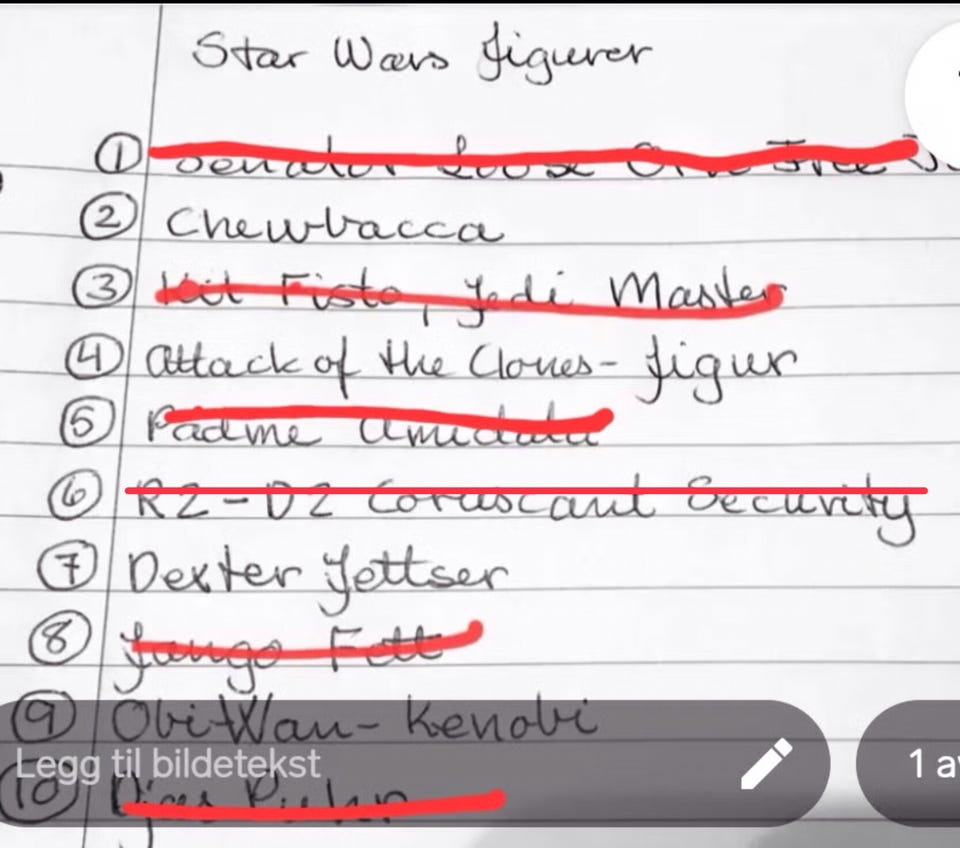 Star Wars figurer
① Senator
② Chewbacca
③ Kit Fisto, Jedi Master
④ Attack of the Clones- figur
⑤ Padme Amidala
⑥ R2-D2 Coruscant Security
⑦ Dexter Jettser
⑧ Jango Fett
⑨ Obi-Wan-Kenobi
Legg til bildetekst
1 a
⑩ Djas Puhr